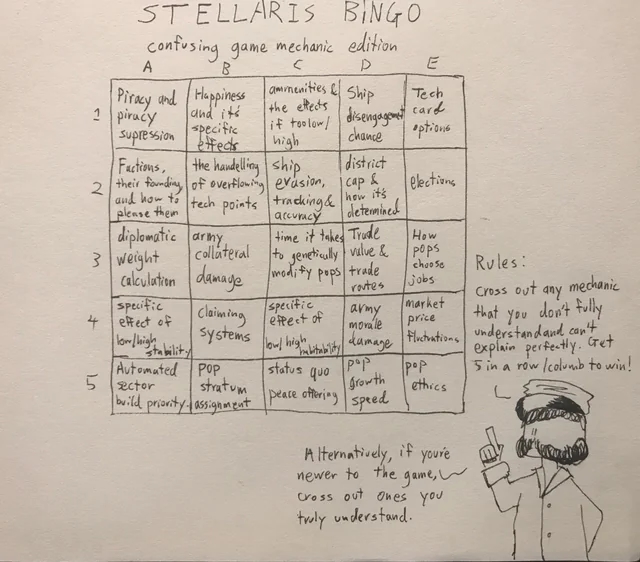 STELLARIS BINGO
confusing game mechanic edition
A B C D E
1
Piracy and
piracy
supression
Happiness
and it's
specific
effects
ammenities &
the effects
if too low/
high
Ship
disengagement
chance
Tech
card
options
2
Factions,
their founding,
and how to
please them
the handelling
of overflowing
tech points
ship
evasion,
tracking &
accuracy
district
cap &
how it's
determined
elections
3
diplomatic
weight
calculation
army
collateral
damage
time it takes
to genetically
modify pops
Trade
value &
trade
routes
How
pops
choose
jobs
4
specific
effect of
low/high
stability
claiming
systems
specific
effect of
low/high
habitability
army
morale
damage
market
price
fluctuations
5
Automated
sector
build priority.
POP
stratum
assignment
status quo
peace offering
pop
growth
speed
pop
ethics
Rules:
Cross out any mechanic
that you don't fully
understand and can't
explain perfectly. Get
5 in a row/columb to win!
Alternatively, if you're
newer to the game,
cross out ones you
truly understand.